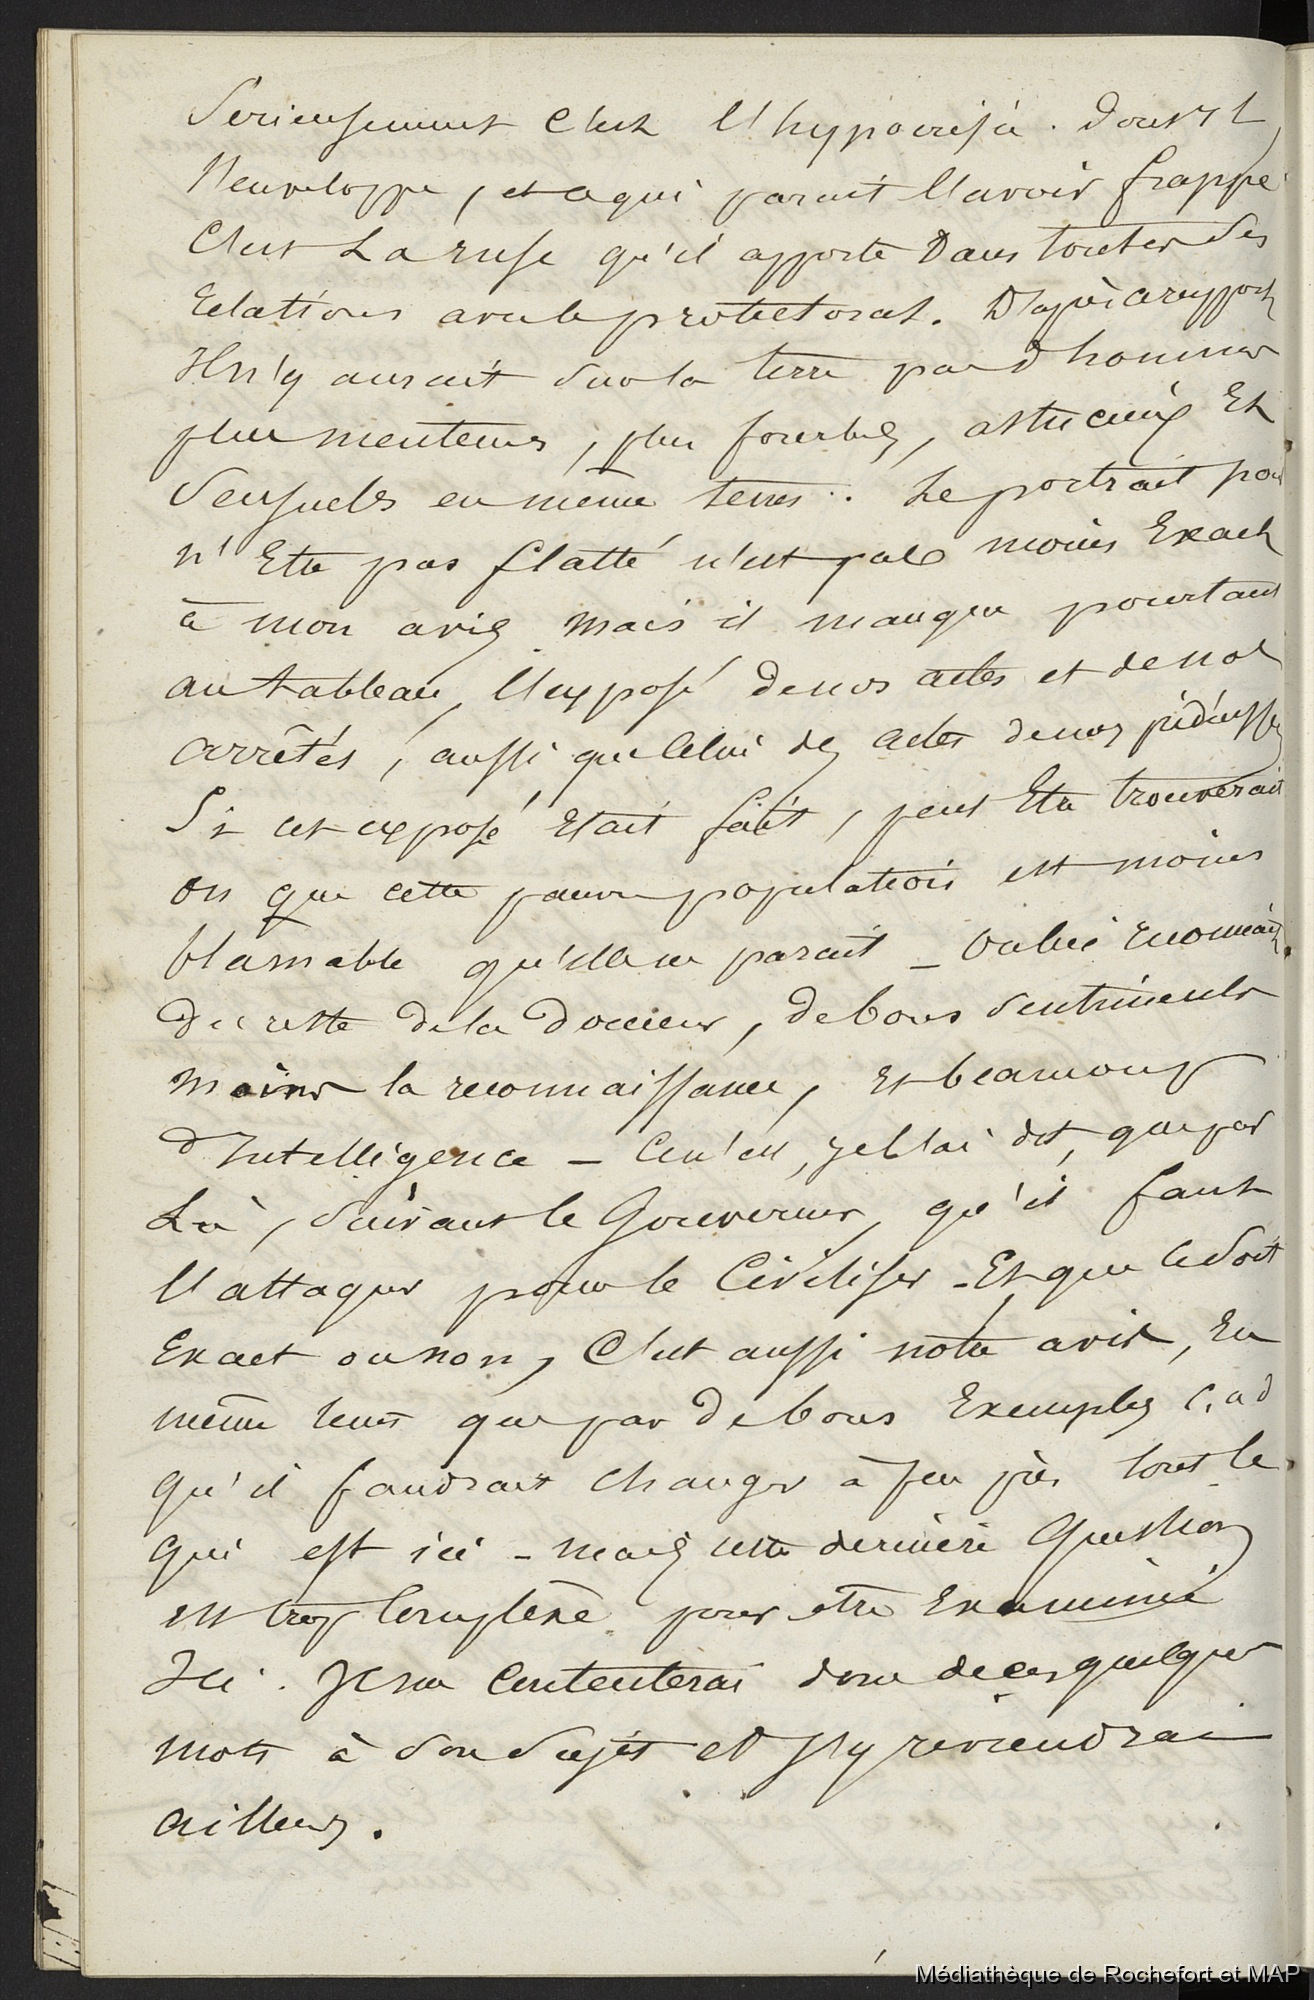 Sérieusement c'est l'hypocrisie dont il
s'enveloppe, et ce qui parait l'avoir frappé
C'est La ruse qu'il apporte Dans toutes Ses
Relations avec le protectorat. D'après ce rapport
Il n'y aurait sur la terre pas d'hommes
plus menteurs, plus fourbes, astucieux Et
Sensuels en même tems. Le portrait pour
n'Etre pas flatté n'est pas moins Exact
à mon avis mais il manque pourtant
au tableau, l'exposé de nos actes et de nos
arrêtés, aussi que Celui des actes de nos
Si cet exposé Etait fait, peut Etre trouverait
on que cette pauvre population est moins
blamable qu'elle ne parait _ on lui reconnait
Du reste de la Douceur, de bons Sentiments
moins la reconnaissance, Et beaucoup
d'Intelligence _ Ce n'est, je l'ai dit, que par
Là, Suivant le Gouverneur, qu'il faut
l'attaquer pour le Civiliser _ Et que ce Soit
Exact ou non, C'est aussi notre avis, En
même tems que par De bons Exemples c.a.d
qu'il faudrait Changer à peu près tout ce
qui est ici _ mais cette dernière Question
est trop Complexe pour être Examinée
Ici. Je me Contenterai donc de ces quelques
mots à Son Sujet et j'y reviendrai
ailleurs.
Médiathèque de Rochefort et MAP